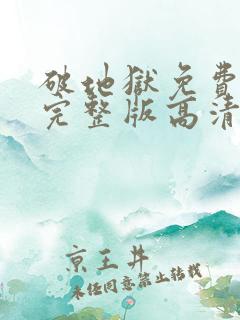 破地獄免費
完整版高清
京王井
未經同意禁止轉載